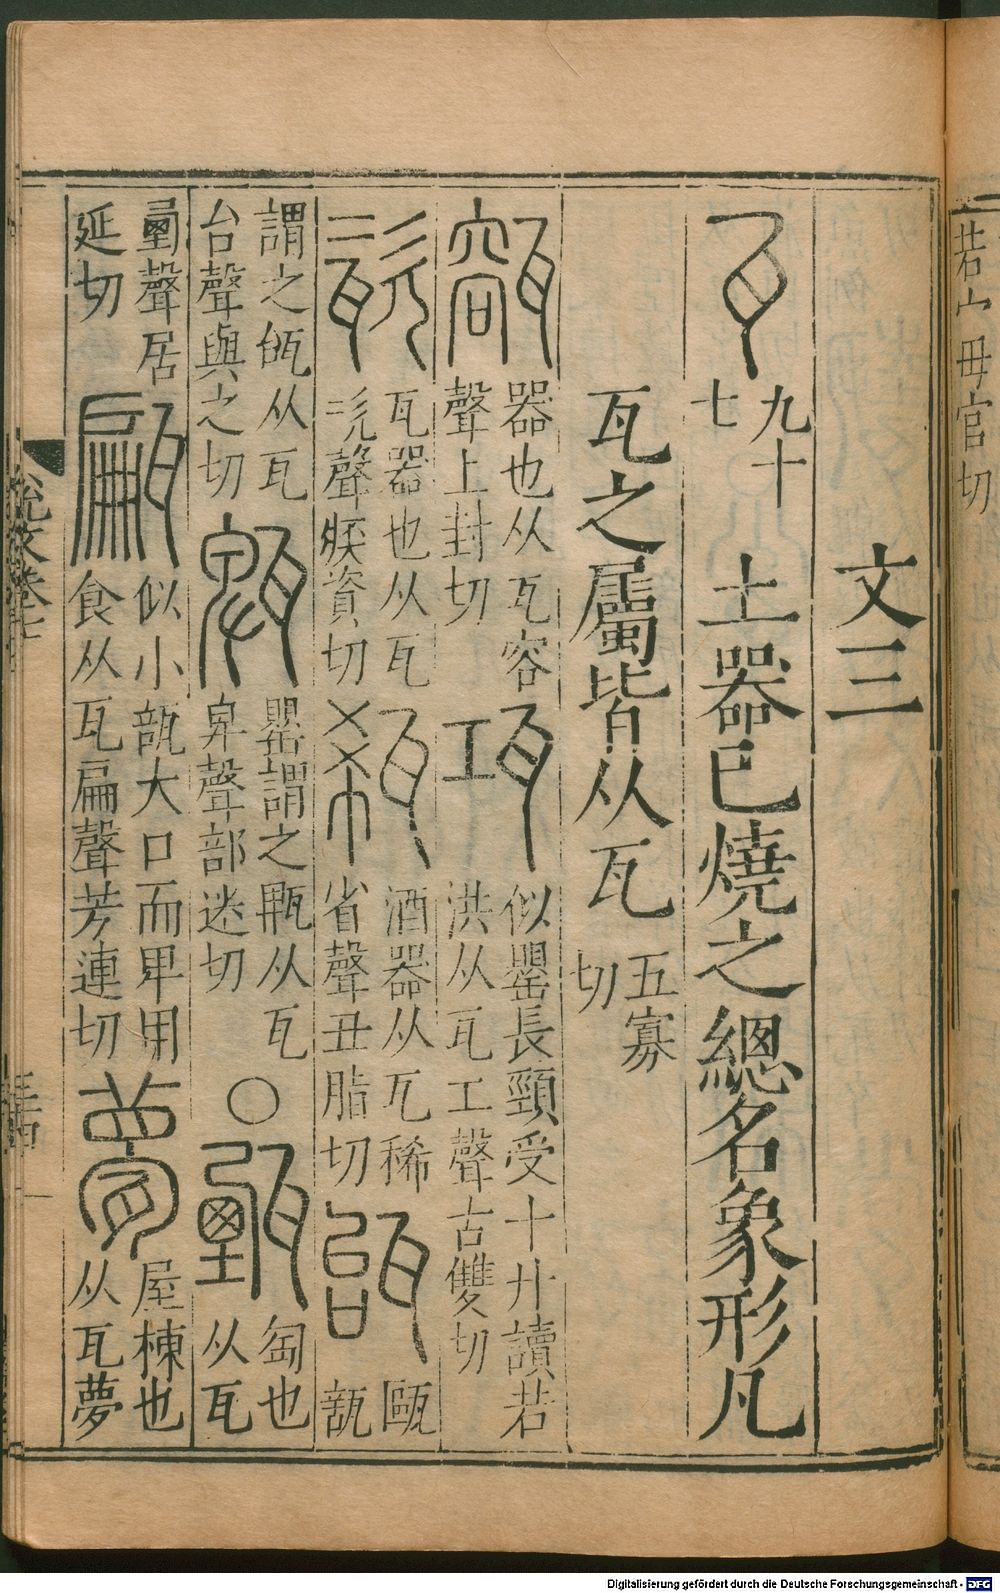 若宀毋官切
文三
瓦九十七土器巳燒之總名象形凡
瓦之屬皆从瓦五寡切
器也从瓦容聲上封切瓨似罌長頸受十升讀若洪从瓦工聲古雙切
瓷瓦器也从瓦次聲疾資切瓻酒器从瓦稀省聲丑脂切瓵甌瓿
謂之瓵从瓦台聲與之切罌謂之从瓦卑聲部迷切○甄匋也从瓦
垔聲居延切甂似小瓿大口而卑用食从瓦扁聲芳連切甍屋棟也从瓦夢
說文卷七
Digitalisierung gefördert durch die Deutsche Forschungsgemeinschaft - DFG